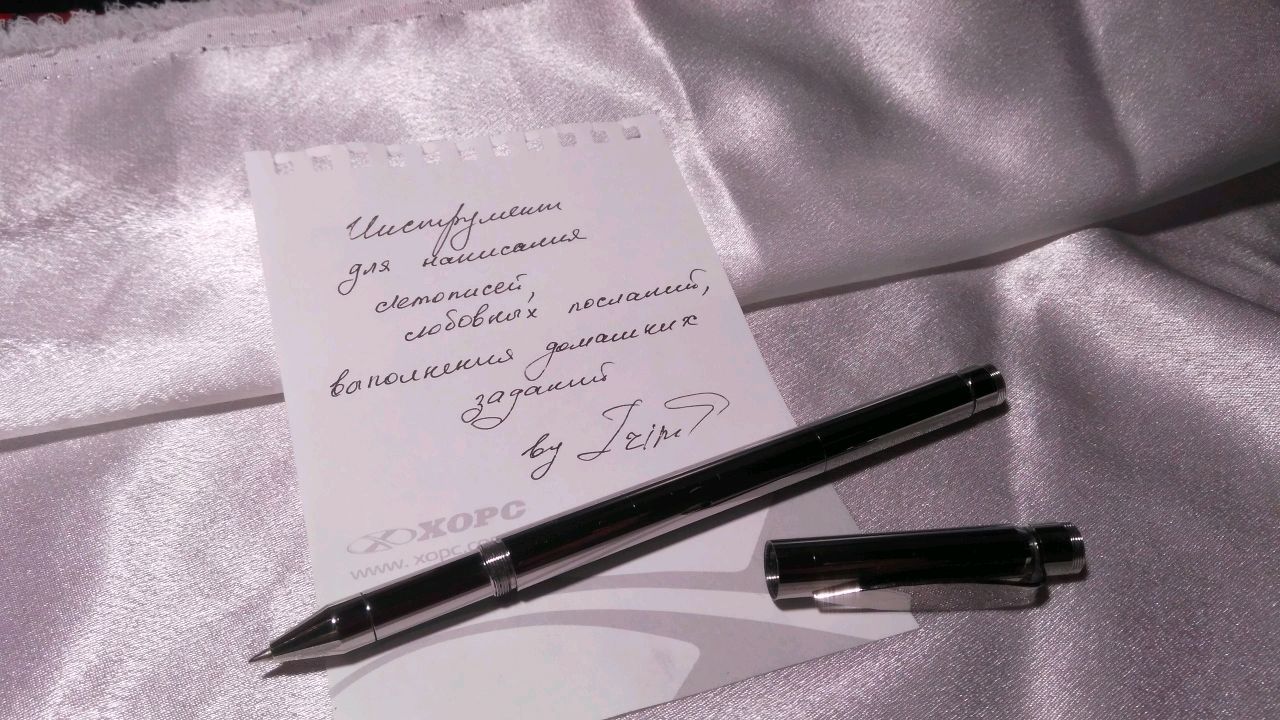 Инструмент
для написания
летописей,
любовных посланий,
выполнения домашних
заданий
by
ХОРС
www.хорс.com